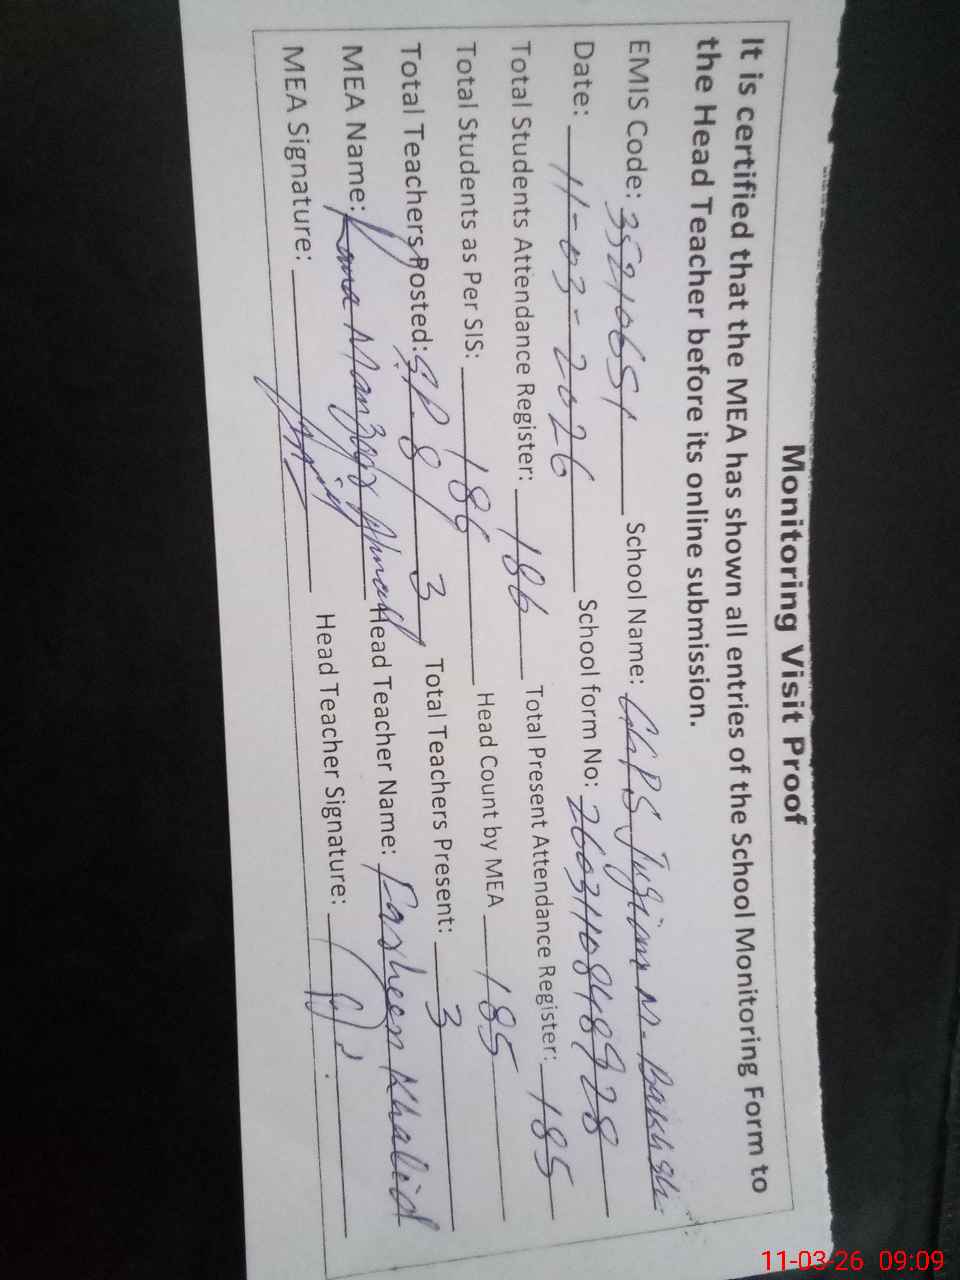 Monitoring Visit Proof
It is certified that the MEA has shown all entries of the School Monitoring Form to
the Head Teacher before its online submission.
EMIS Code: 35210651 School Name: GGPS M. Bakhsh
Date: 11-03-2026 School form No: 2603110848928
Total Students Attendance Register: 186 Total Present Attendance Register: 185
Total Students as Per SIS: 186 Head Count by MEA 185
Total Teachers Posted: 3 Total Teachers Present: 3
MEA Name: Rana Manzoor Ahmad Head Teacher Name: Farheen Khalid
MEA Signature: Head Teacher Signature:
11-03-26 09:09